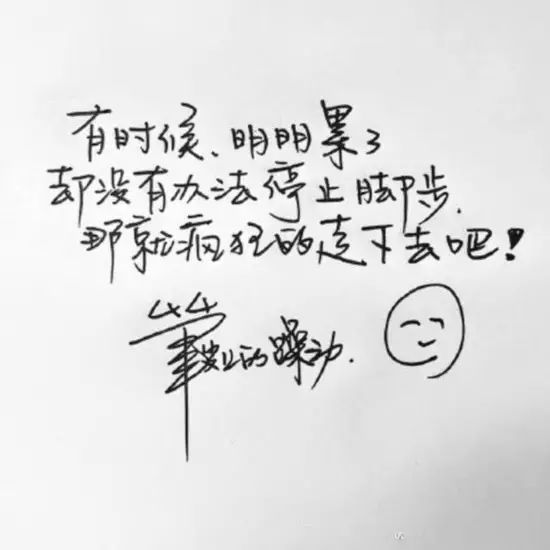 有时候、明明累了
却没有办法停止脚步.
那就疯狂的走下去吧！
笔尖上的躁动.